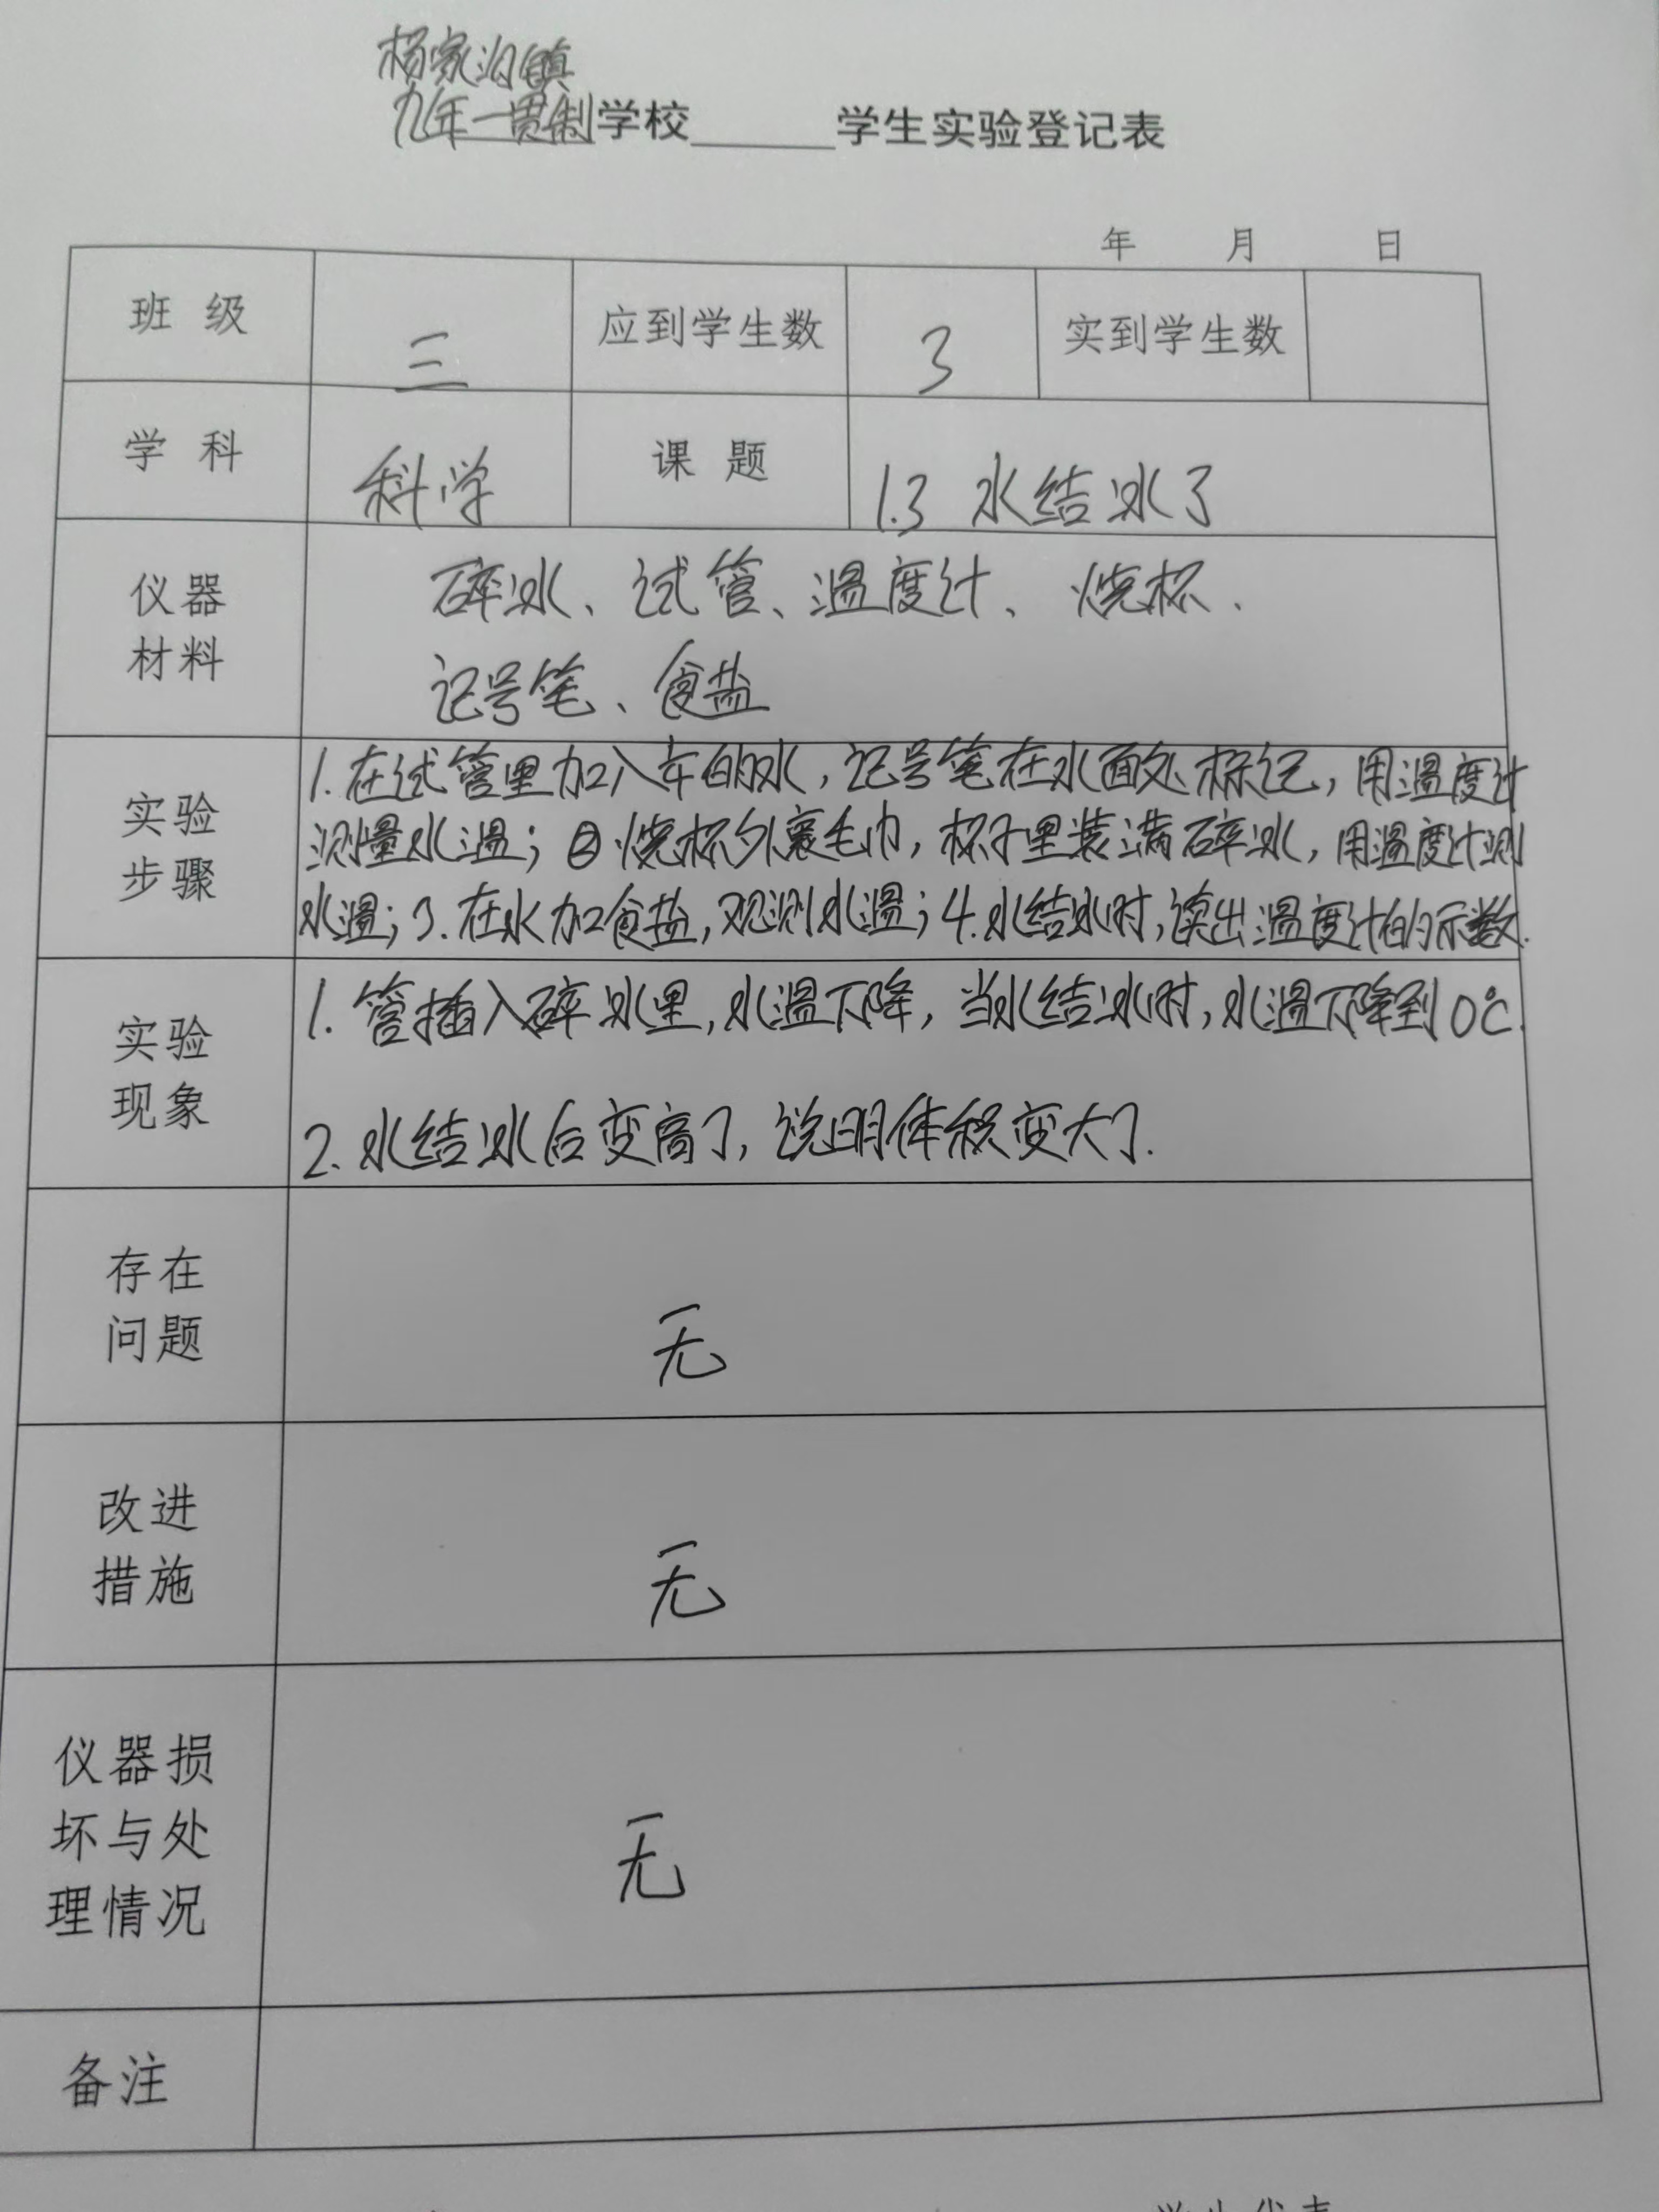 杨家沟镇
九年一贯制学校 学生实验登记表
年 月 日
班 级 三 应到学生数 3 实到学生数
学 科 科学 课 题 1.3 水结冰了
仪器
材料
碎冰、试管、温度计、烧杯、
记号笔、食盐
实验
步骤
1.在试管里加入 的水,记号笔在水面处标记,用温度计
测量水温;②烧杯外裹毛巾,杯子里装满碎冰,用温度计测
水温;3.在水加食盐,观测水温;4.水结冰时,读出温度计的示数.
实验
现象
1. 管插入碎冰里,水温下降,当水结冰时,水温下降到0℃.
2. 水结冰后变高了,说明体积变大了.
存在
问题
无
改进
措施
无
仪器损
坏与处
理情况
无
备注